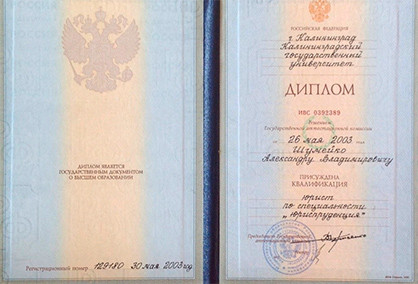 ДИПЛОМ ЯВЛЯЕТСЯ
ГОСУДАРСТВЕННЫМ ДОКУМЕНТОМ
О ВЫСШЕМ ОБРАЗОВАНИИ
Регистрационный номер 129180 30 мая 2003 г.
РОССИЙСКАЯ ФЕДЕРАЦИЯ
г. Калининград
Калининградский
государственный
университет
ДИПЛОМ
ИВС 0392389
Решением
Государственной аттестационной комиссии
от 26 мая 2003
Шумейко
Александру Владимировичу
ПРИСУЖДЕНА
КВАЛИФИКАЦИЯ
юрист
по специальности
„юриспруденция"
Председатель Государственной
аттестационной комиссии